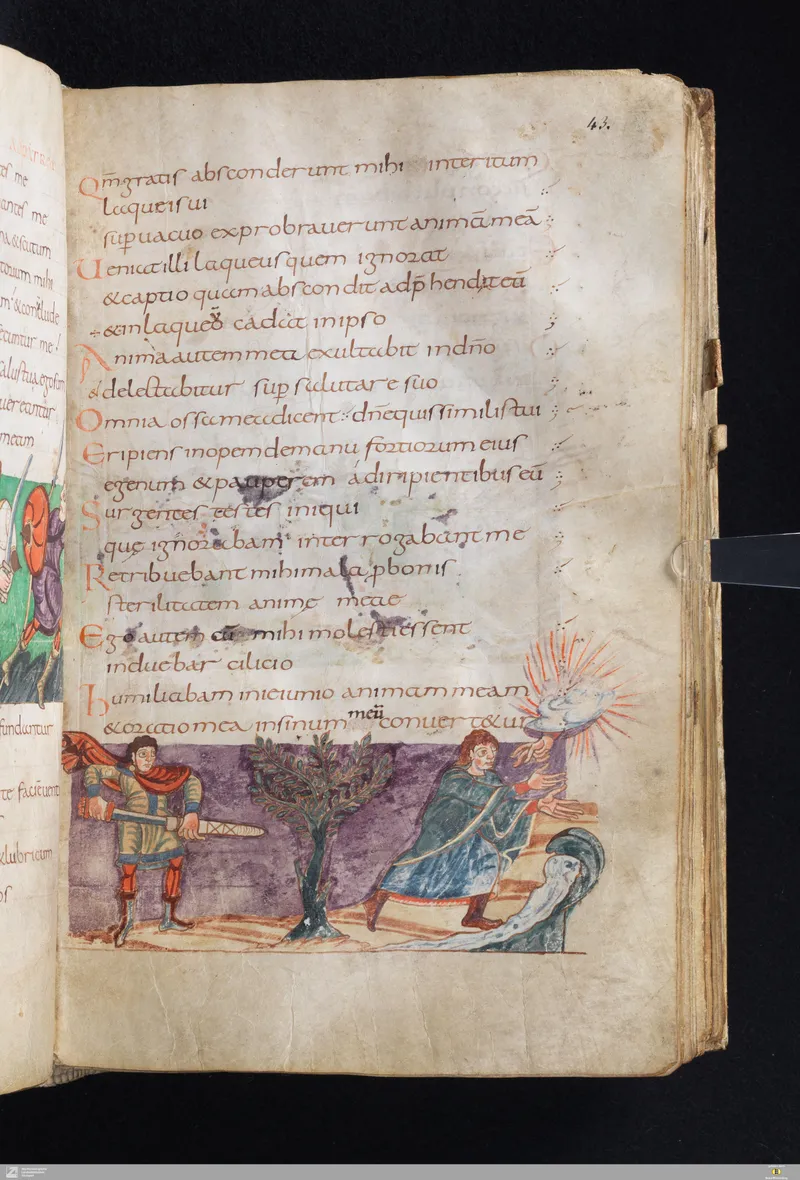 me
antes me
&scutum
mihi
me
meam
fundantur
lubricum
43.
Qm̄ gratis absconderunt mihi interitum
laquei sui
sup̄uacuo exprobrauerunt animā meā
Ueniat illi laqueus quem ignorat
&captio quam abscondit adp̄hendat eū
&in laqueo cadat in ipso
Anima autem mea exultabit in dn̄o
&delectabitur sup̄ salutare suo
Omnia ossa mea dicent dn̄e quis similis tui
Eripiens inopem de manu fortiorum eius
egenum &pauperem a diripientibus eū
Surgentes testes iniqui
quę ignorabam interrogabant me
Retribuebant mihi mala p̄ bonis
sterilitatem animę meae
Ego autem cū mihi molesti essent
induebar cilicio
humiliabam in ieiunio animam meam
&oratio mea in sinum meū conuert&ur